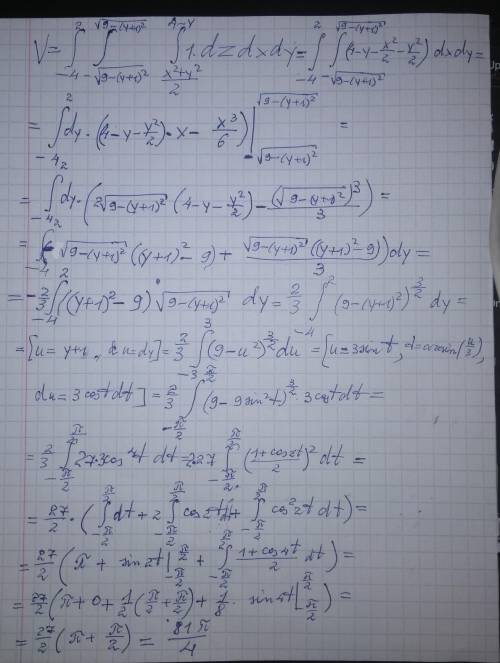 V = ∫_{-4}^{2} ∫_{-√(9-(y+1)²)}^{√(9-(y+1)²)} ∫_{(x²+y²)/2}^{4-y} 1·dz dx dy = ∫_{-4}^{2} ∫_{-√(9-(y+1)²)}^{√(9-(y+1)²)} (4-y-x²/2-y²/2) dx dy =
= ∫_{-4}^{2} dy·(4-y-y²/2)·x - x³/6) |_{-√(9-(y+1)²)}^{√(9-(y+1)²)} =
= ∫_{-4}^{2} dy·(2√(9-(y+1)²) (4-y-y²/2) - (√(9-(y+1)²))³/3) =
= ∫_{-4}^{2} √(9-(y+1)²) ((y+1)²-9) + √(9-(y+1)²) ((y+1)²-9)/3) dy =
= -2/3 ∫_{-4}^{2} ((y+1)²-9) √(9-(y+1)²) dy = 2/3 ∫_{-4}^{2} (9-(y+1)²)^{3/2} dy =
= [u = y+1, du = dy] = 2/3 ∫_{-3}^{3} (9-u²)^{3/2} du = [u = 3sin t, t = arcsin(u/3),
du = 3cos t dt] = 2/3 ∫_{-π/2}^{π/2} (9-9sin²t)^{3/2} 3cos t dt =
= 2/3 ∫_{-π/2}^{π/2} 27·3cos⁴t dt = 2·27 ∫_{-π/2}^{π/2} ((1+cos2t)/2)² dt =
= 27/2·(∫_{-π/2}^{π/2} dt + 2∫_{-π/2}^{π/2} cos2t dt + ∫_{-π/2}^{π/2} cos²2t dt) =
= 27/2 (π + sin2t |_{-π/2}^{π/2} + ∫_{-π/2}^{π/2} (1+cos4t)/2 dt) =
= 27/2 (π+0+1/2(π/2+π/2) + 1/8 · sin4t |_{-π/2}^{π/2}) =
= 27/2 (π+π/2) = 81π/4